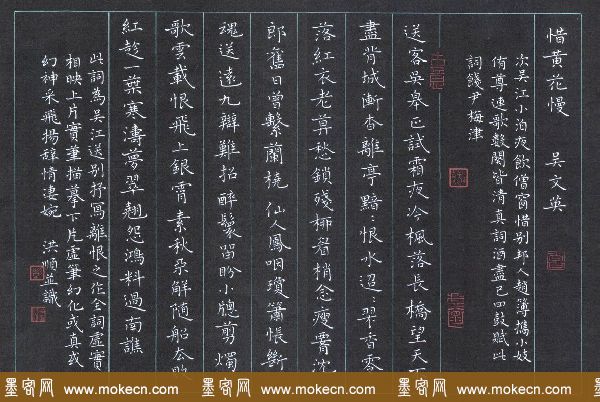 惜黃花慢 吳文英
次吳江小泊夜飲僧窗惜別邦人趙簿攜小妓
侑尊連歌數闋皆清真詞酒盡已四鼓賦此
詞餞尹梅津
送客吳皋正試霜夜冷楓落長橋望天不
盡背城漸杳離亭黯:恨水迢:翠香零
落紅衣老暮愁鎖殘柳眉梢念瘦腰沈
郎舊日曾繫蘭橈 仙人鳳咽瓊簫悵斷
魂送遠九辯難招醉鬟留盼小牕剪燭
歌雲載恨飛上銀霄素秋不解隨船去敗
紅趁一葉寒濤夢翠翹怨鴻料過南譙
此詞為吳江送別抒寫離恨之作全詞虛實
相映上片實筆描摹下片虛筆幻化或真或
幻神采飛揚辭情淒婉 洪順並識
墨客网 www.mokecn.com 墨客网 www.mokecn.com 墨客网 www.mokecn.com